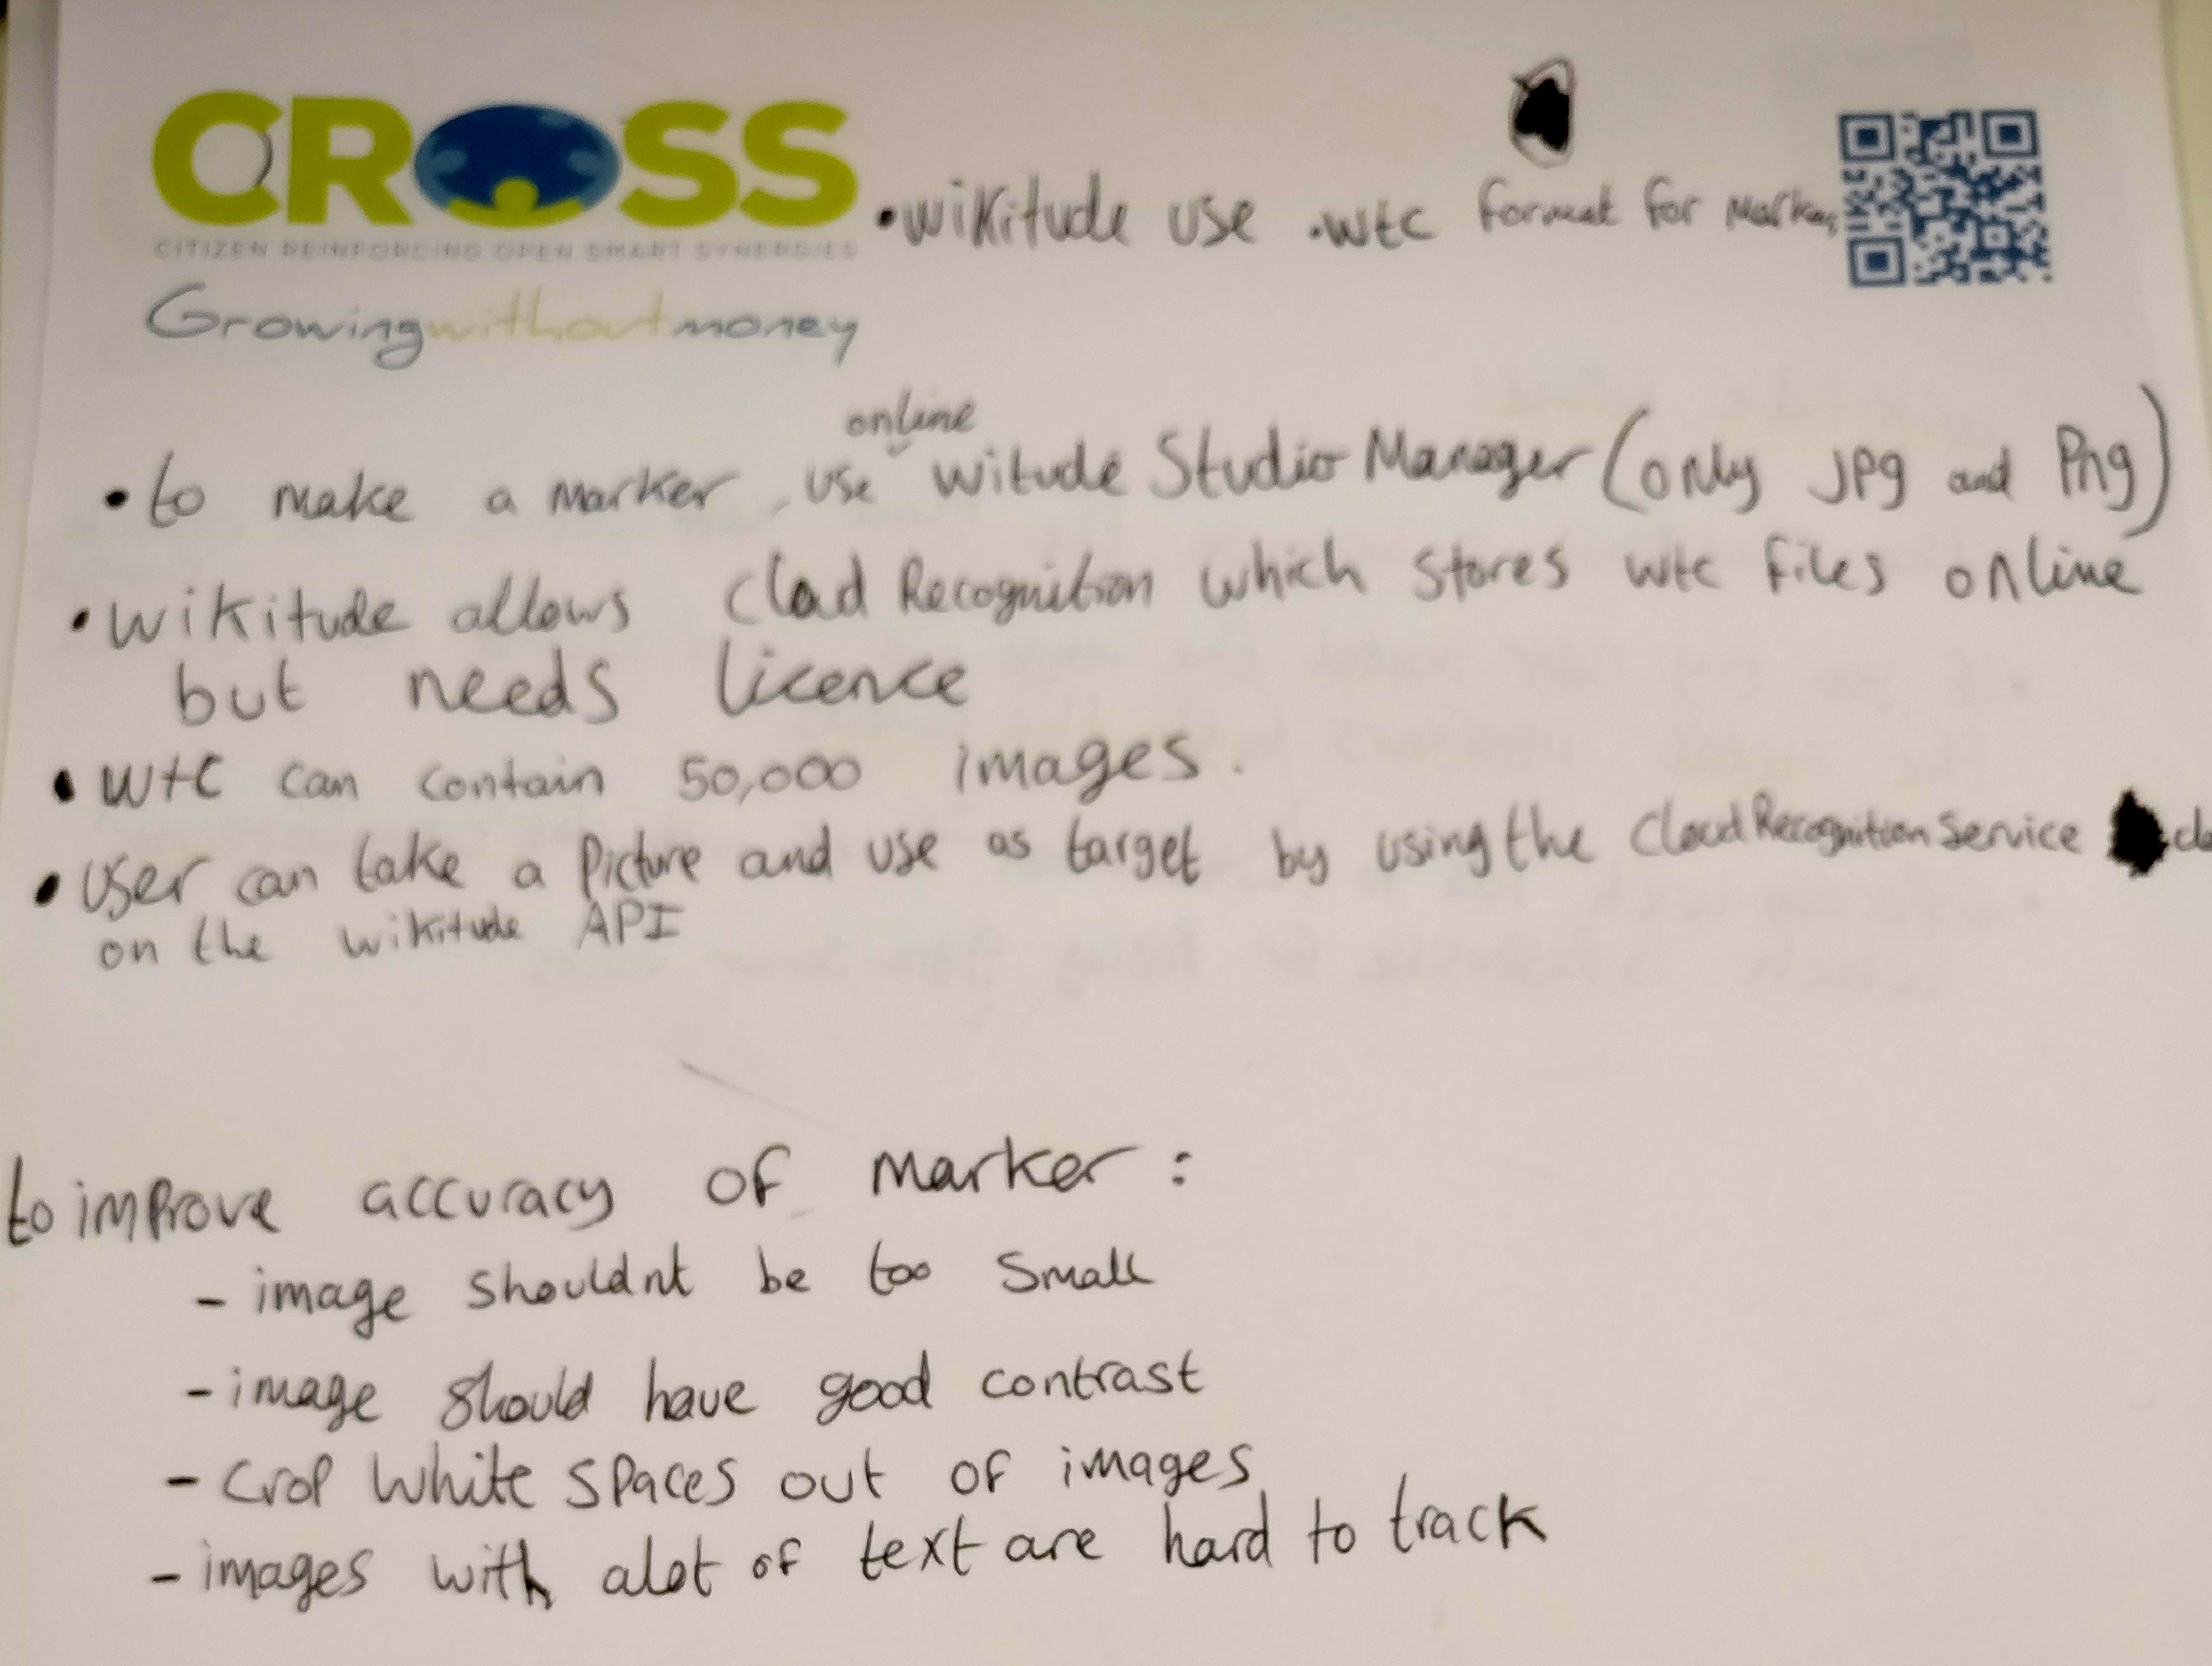 CROSS
CITIZEN REINFORCING OPEN SMART SYNERGIES
Growingwithoutmoney
• wikitude use .wtc format for Marker
online
• to make a marker, use witude Studio Manager (only jpg and Png)
• wikitude allows clod Recognition which stores wtc files online
but needs licence
• wtc can contain 50,000 images.
• user can take a Picture and use as target by using the CloudRecognitionService
on the wikitude API
to improve accuracy of marker :
- image shouldnt be too small
- image should have good contrast
- crop white spaces out of images
- images with alot of text are hard to track